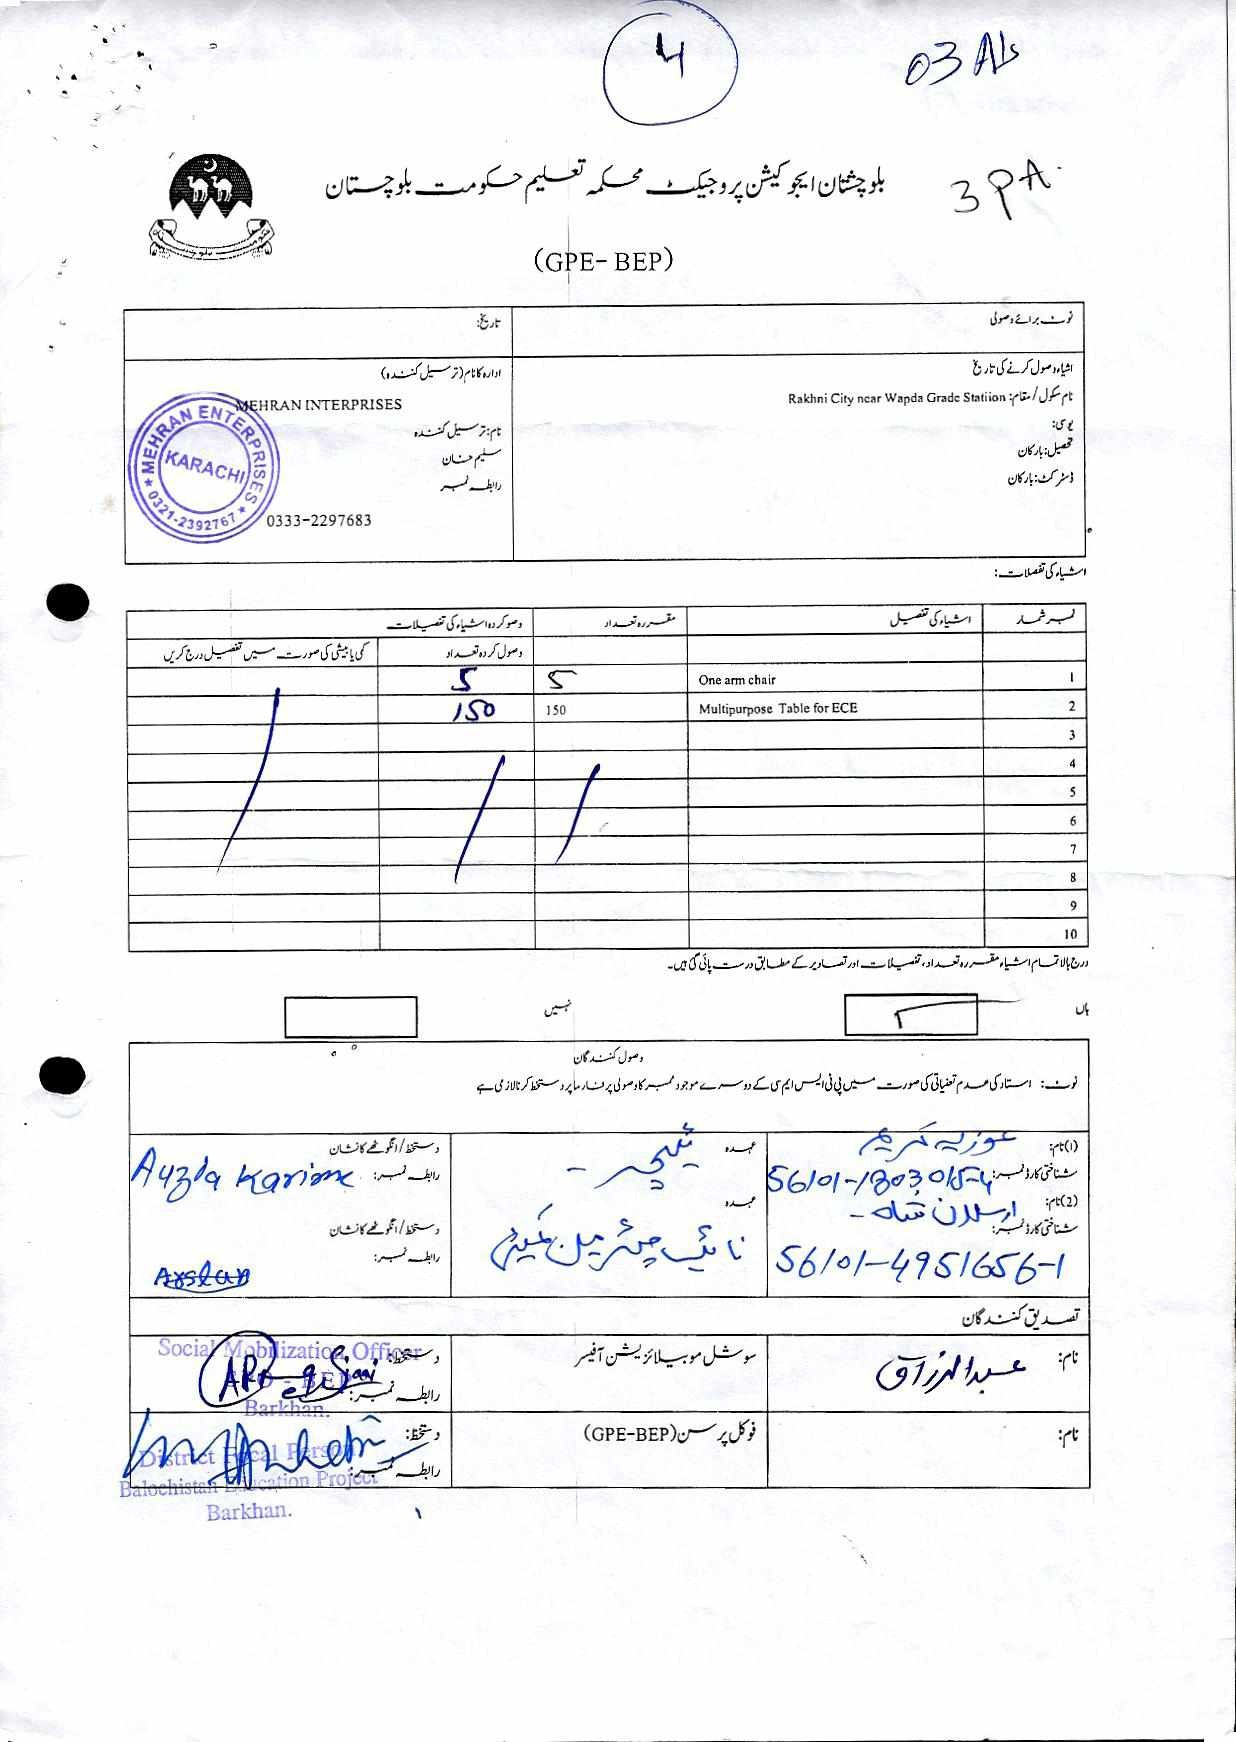 4
03 Als
بلوچشتان ایجوکیشن پروجیکٹ محکمہ تعلیم حکومت بلوچستان
3 PA
(GPE- BEP)
نوٹ برائے وصولی
تاریخ:
اشیاء وصول کرنے کی تاریخ
نام سکول / مقام: Rakhni City near Wapda Grade Statiion
یو سی:
تحصیل: بارکان
ڈسٹرکٹ: بارکان
ادارہ کا نام (ترسیل کنندہ)
MEHRAN INTERPRISES
نام: ترسیل کنندہ
سلیم خان
رابطہ نمبر
0333-2297683
MEHRAN ENTERPRISES
KARACHI
0321-2392767
اشیاء کی تفصلات:
نمبر شمار اشیاء کی تفصیل مقررہ تعداد وصو کردہ اشیاء کی تفصیلات
وصول کردہ تعداد کمی یا بیشی کی صورت میں تفصیل درج کریں
1 One arm chair 5 5
2 Multipurpose Table for ECE 150 150
3
4
5
6
7
8
9
10
درج بالا تمام اشیاء مقررہ تعداد، تفصیلات اور تصاویر کے مطابق درست پائی گئی ہیں۔
ہاں
نہیں
وصول کنندگان
نوٹ: استاد کی عدم تعیناتی کی صورت میں پی ٹی ایس ایم سی کے دوسرے موجود ممبر کا وصولی پر فارما پر دستخط کرنا لازمی ہے
(1) نام: عوزیہ کریم عہدہ ٹیچر - دستخط / انگوٹھے کا نشان
شناختی کارڈ نمبر: 56101-1803015-4 رابطہ نمبر: Auzda Karime
(2) نام: ارسلان شاہ - عہدہ نائب چیئرمین کمیٹی دستخط / انگوٹھے کا نشان
شناختی کارڈ نمبر: 56101-4951656-1 رابطہ نمبر:
Arslan
تصدیق کنندگان
نام: عبدالرزاق سوشل موبیلائزیشن آفیسر دستخط:
رابطہ نمبر:
Social Mobilization Officer
BEP
Barkhan.
نام: فوکل پرسن (GPE-BEP) دستخط:
رابطہ نمبر:
District Focal Person
Balochistan Education Project
Barkhan.